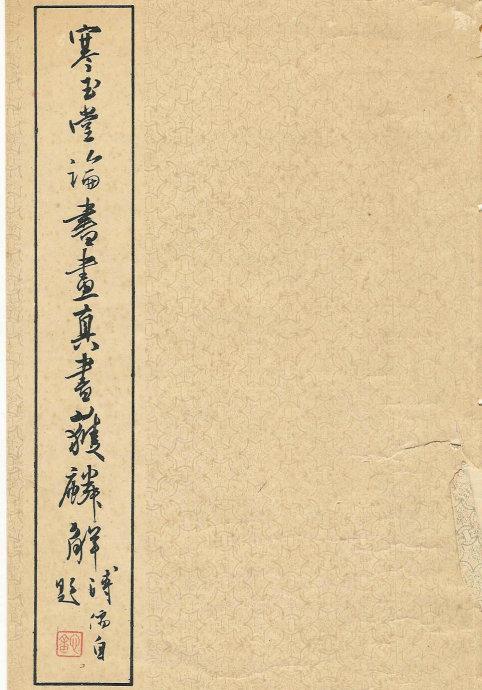 寒玉堂論書畫真書獲麟解
溥儒自
題